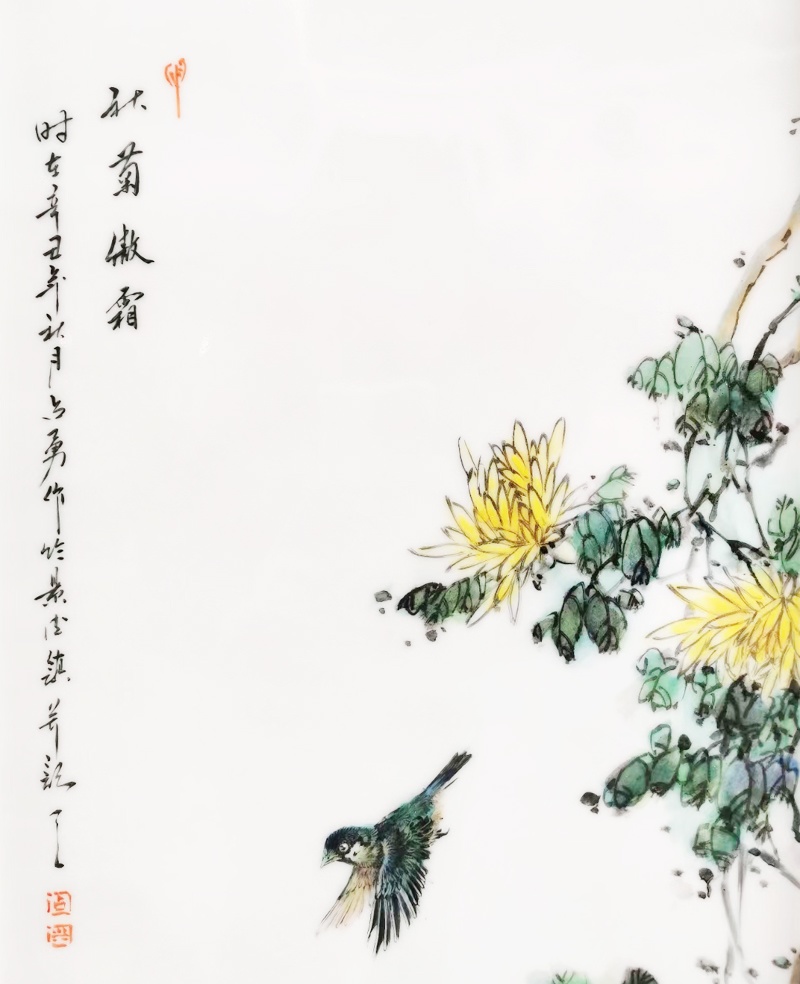 秋菊傲霜
时在辛丑年秋月占勇作於景德镇并記